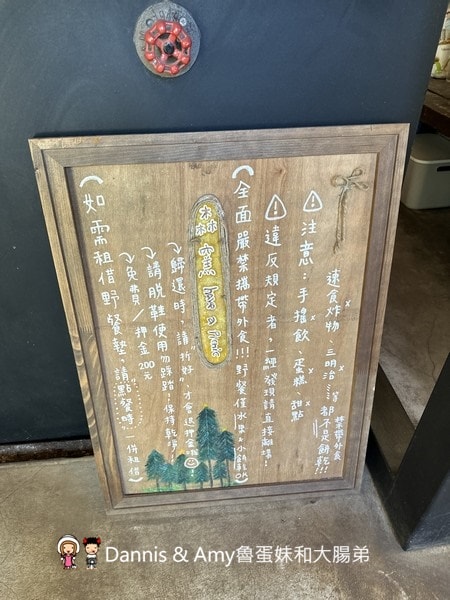 速食炸物、三明治……等都不是餅乾!!!
禁帶外食
注意：手搖飲、蛋糕、甜點
違反規定者，一經發現請直接離場！
(全面嚴禁攜帶外食!!!野餐僅水果、小餅乾OK)
森窯
歸還時，請"折好"才會退押金喔
請脫鞋使用勿踩踏！保持乾淨！
免費／押金200元
(如需租借野餐墊，請"點餐時"一併租借)
Dannis & Amy魯蛋妹和大腸弟